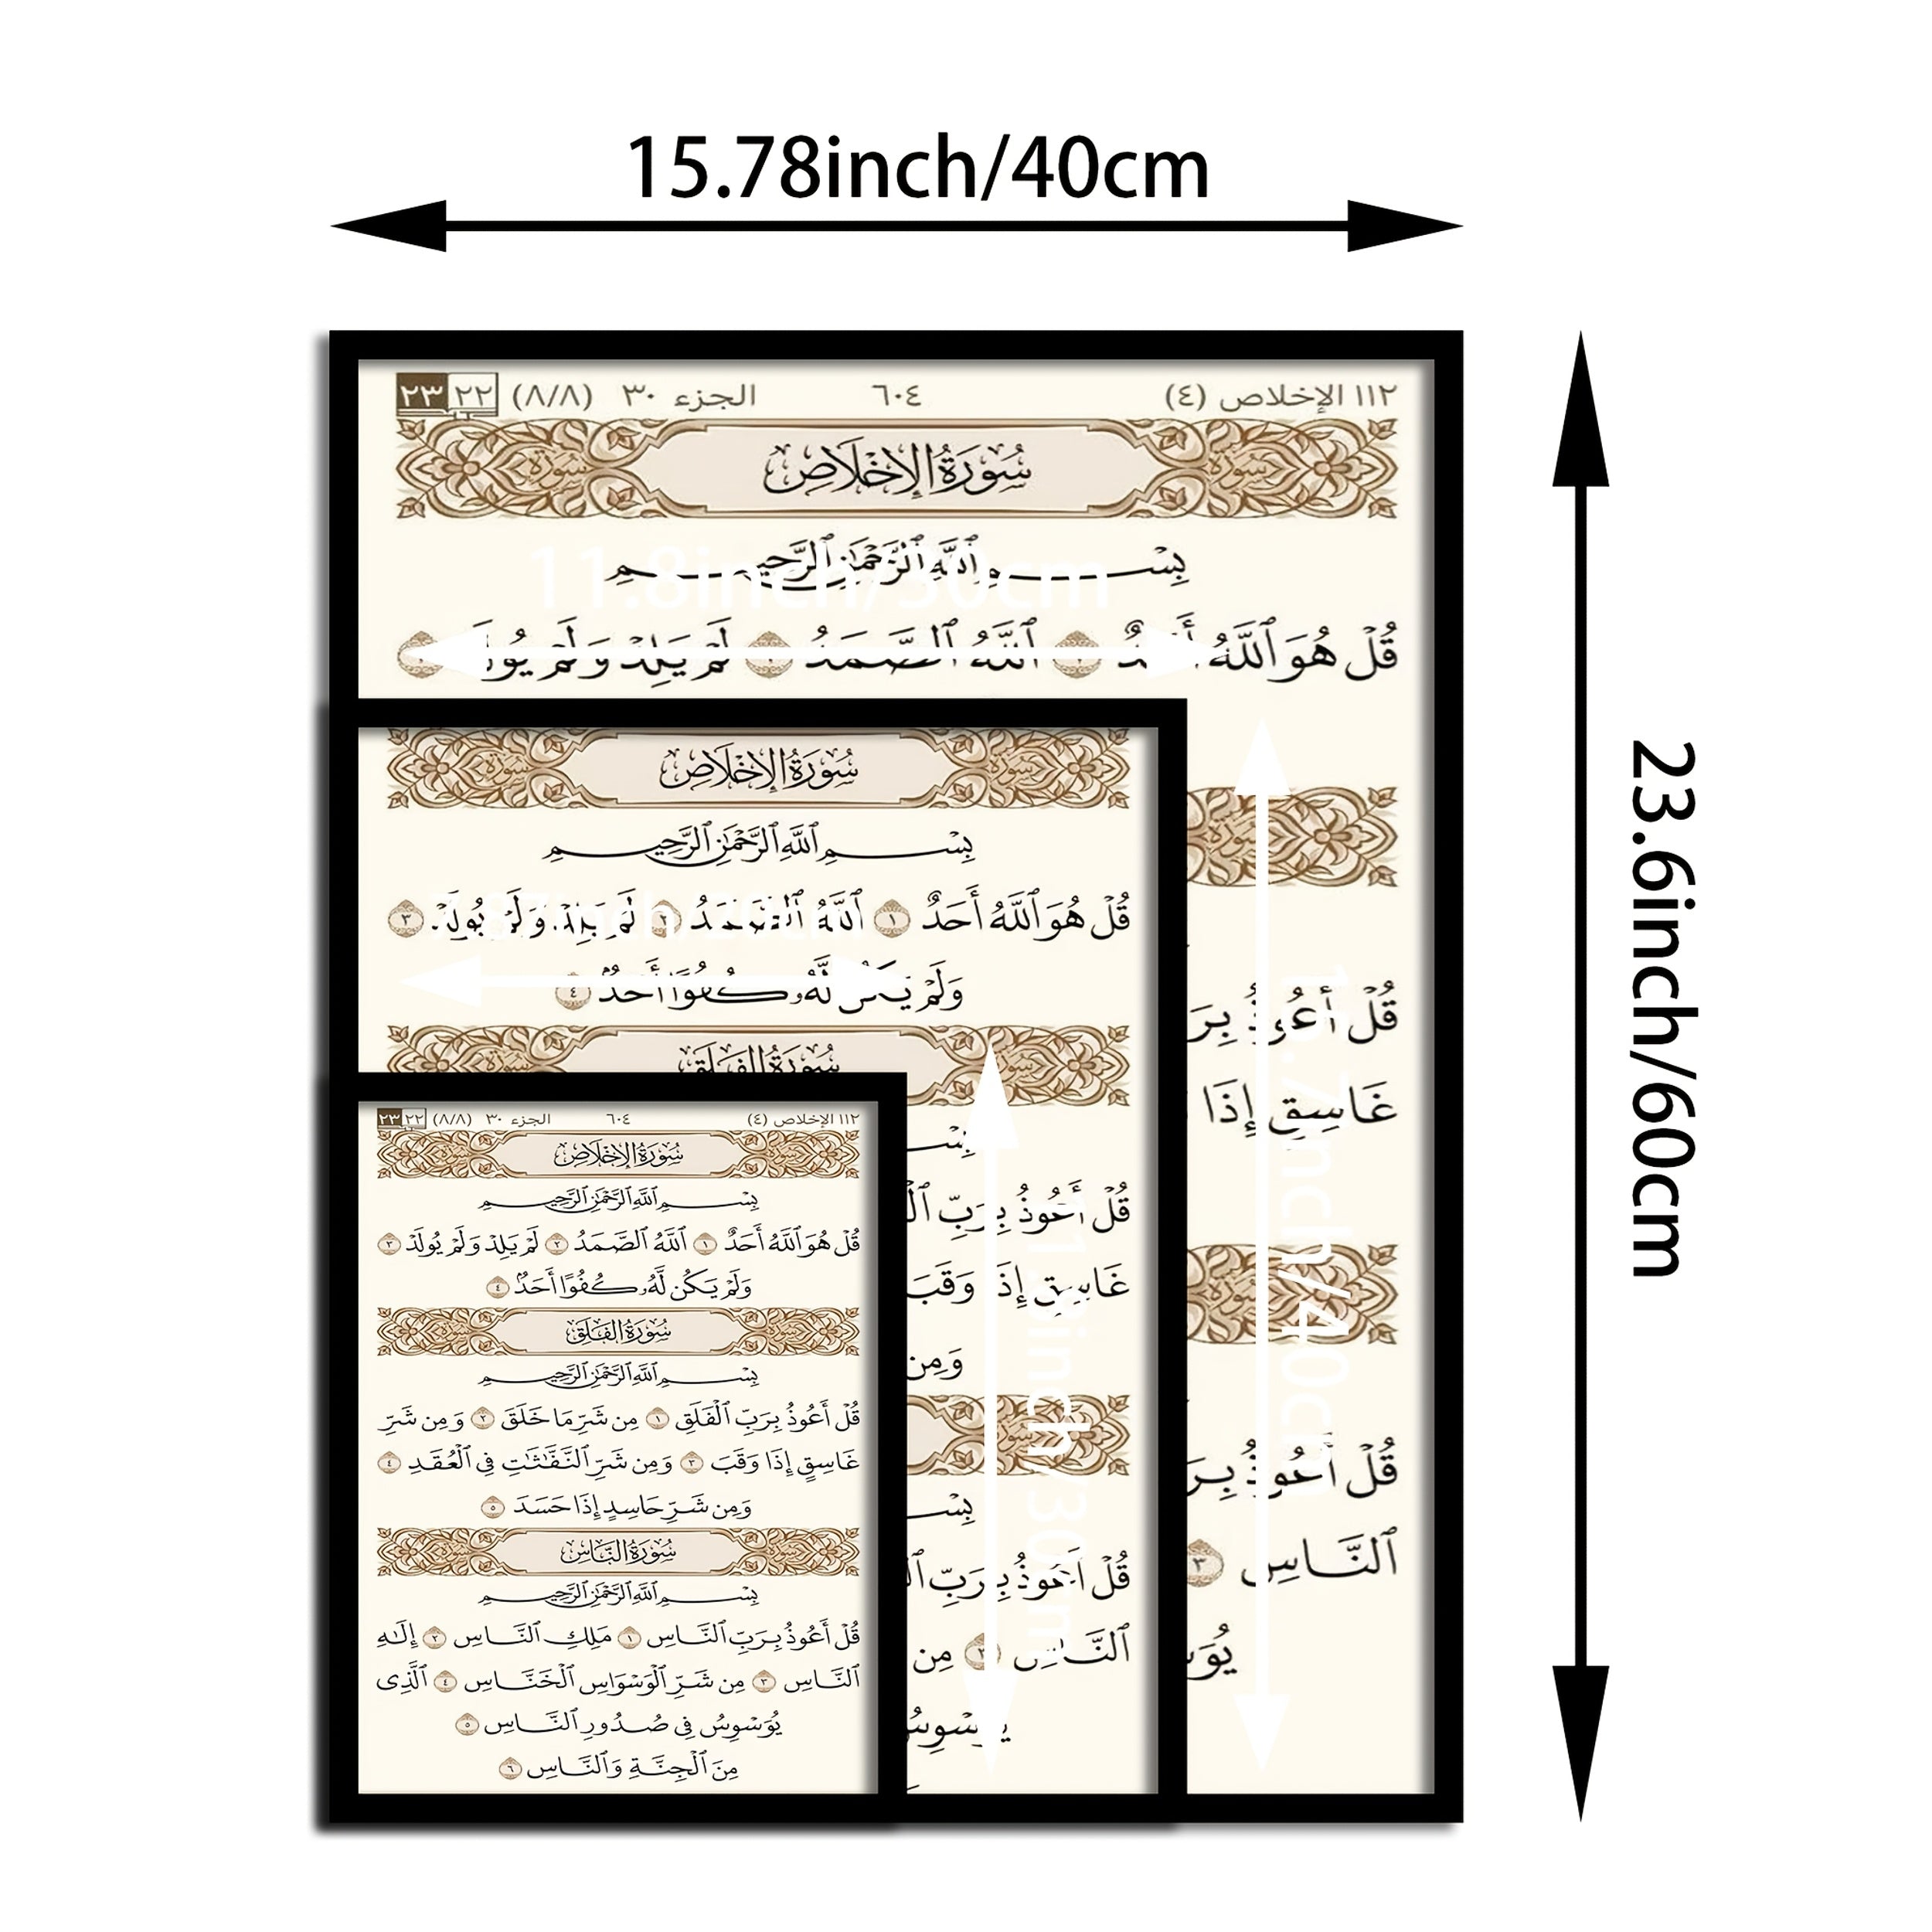 15.78inch/40cm
23.6inch/60cm
١١٢ الإخلاص (٤) ٦٠٤ الجزء ٣٠ (٨/٨) ٢٢ ٢٣
سُورَةُ الإِخْلَاصِ
بِسْمِ ٱللَّهِ ٱلرَّحْمَٰنِ ٱلرَّحِيمِ
11.8inch/30cm
قُلْ هُوَ ٱللَّهُ أَحَدٌ ١ ٱللَّهُ ٱلصَّمَدُ ٢ لَمْ يَلِدْ وَلَمْ يُولَدْ
سُورَة
قُلْ أَعُوذُ بِرَ
غَاسِقٍ إِذَا
سُورَة
قُلْ أَعُوذُ بِرَ
ٱلنَّاسِ ٣
يُوَسْ
15.7inch/40cm
سُورَةُ الإِخْلَاصِ
بِسْمِ ٱللَّهِ ٱلرَّحْمَٰنِ ٱلرَّحِيمِ
قُلْ هُوَ ٱللَّهُ أَحَدٌ ١ ٱللَّهُ ٱلصَّمَدُ ٢ لَمْ يَلِدْ وَلَمْ يُولَدْ ٣
وَلَمْ يَكُن لَّهُۥ كُفُوًا أَحَدٌۢ ٤
سُورَةُ الفَلَقِ
بِسْ
قُلْ أَعُوذُ بِرَبِّ ٱلْ
غَاسِقٍ إِذَا وَقَبَ
وَمِن
سُورَة
بِسْ
قُلْ أَعُوذُ بِرَبِّ ٱل
ٱلنَّاسِ ٣ مِن
يُوَسْوِسُ
11.8inch/30cm
١١٢ الإخلاص (٤) ٦٠٤ الجزء ٣٠ (٨/٨) ٢٢ ٢٣
سُورَةُ الإِخْلَاصِ
بِسْمِ ٱللَّهِ ٱلرَّحْمَٰنِ ٱلرَّحِيمِ
قُلْ هُوَ ٱللَّهُ أَحَدٌ ١ ٱللَّهُ ٱلصَّمَدُ ٢ لَمْ يَلِدْ وَلَمْ يُولَدْ ٣
وَلَمْ يَكُن لَّهُۥ كُفُوًا أَحَدٌۢ ٤
سُورَةُ الفَلَقِ
بِسْمِ ٱللَّهِ ٱلرَّحْمَٰنِ ٱلرَّحِيمِ
قُلْ أَعُوذُ بِرَبِّ ٱلْفَلَقِ ١ مِن شَرِّ مَا خَلَقَ ٢ وَمِن شَرِّ
غَاسِقٍ إِذَا وَقَبَ ٣ وَمِن شَرِّ ٱلنَّفَّٰثَٰتِ فِى ٱلْعُقَدِ ٤
وَمِن شَرِّ حَاسِدٍ إِذَا حَسَدَ ٥
سُورَةُ النَّاسِ
بِسْمِ ٱللَّهِ ٱلرَّحْمَٰنِ ٱلرَّحِيمِ
قُلْ أَعُوذُ بِرَبِّ ٱلنَّاسِ ١ مَلِكِ ٱلنَّاسِ ٢ إِلَٰهِ
ٱلنَّاسِ ٣ مِن شَرِّ ٱلْوَسْوَاسِ ٱلْخَنَّاسِ ٤ ٱلَّذِى
يُوَسْوِسُ فِى صُدُورِ ٱلنَّاسِ ٥
مِنَ ٱلْجِنَّةِ وَٱلنَّاسِ ٦